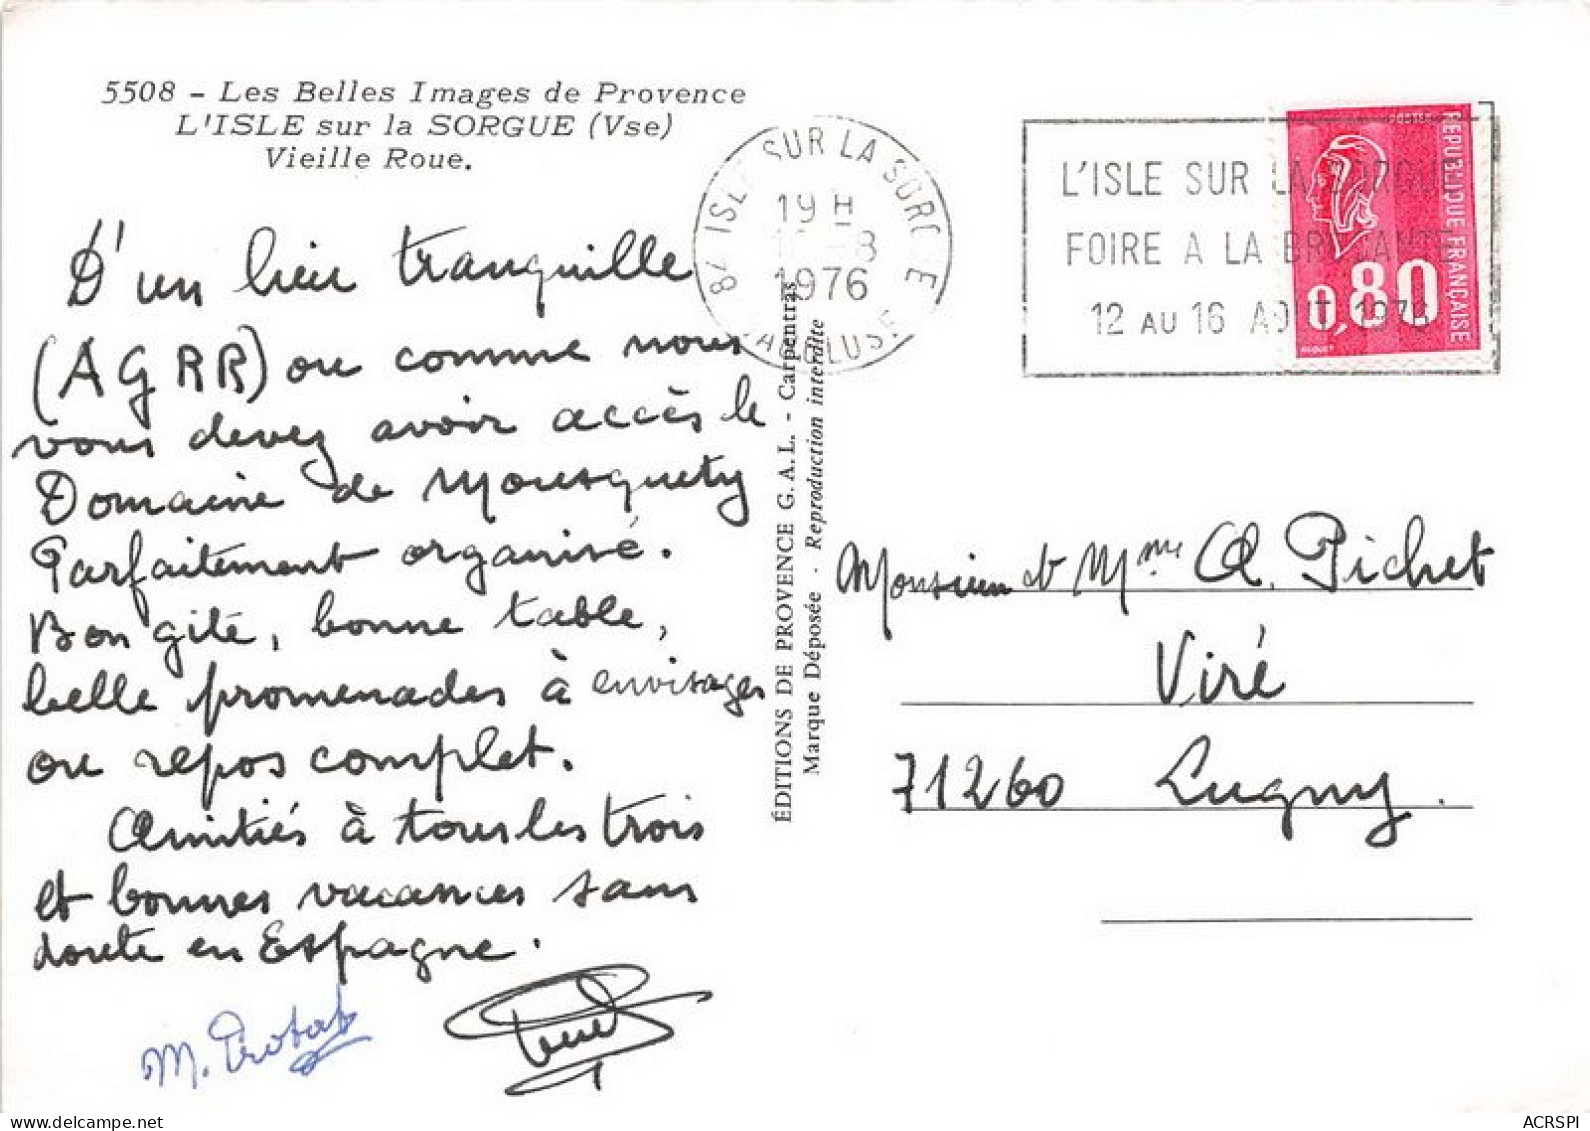 5508 - Les Belles Images de Provence
L'ISLE sur la SORGUE (Vse)
Vieille Roue.
D'un lieu tranquille
(AGRR) ou comme nous
vous devez avoir accès le
Domaine de Mousquety
Parfaitement organisé.
Bon gîte, bonne table,
belle promenades à envisager
ou repos complet.
Amitiés à tous les trois
et bonnes vacances sans
doute en Espagne.
M. Protat
84 ISLE SUR LA SORGUE
19 H
-8
1976
VAUCLUSE
L'ISLE SUR LA SORGUE
FOIRE A LA BROCANTE
12 AU 16 AOUT 1976
POSTES
REPUBLIQUE FRANÇAISE
0,80
ÉDITIONS DE PROVENCE G.A.L. - Carpentras
Marque Déposée - Reproduction interdite
Monsieur et Mme A. Pichet
Viré
71260 Lugny.
www.delcampe.net
ACRSPI